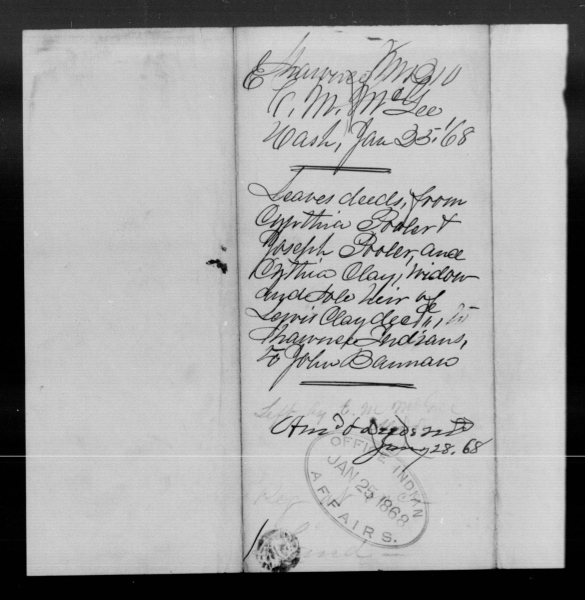 Shawnee
C. M. McGee
Wash, Jan 25, '68
Leaves deeds, from
Cynthia Pooler &
Joseph Pooler, and
Cynthia Clay, widow
and sole heir of
Lewis Clay dec'd,
Shawnee Indians,
to John Bannan
28. 68
OFFICE INDIAN
JAN 25 1868
AFFAIRS.